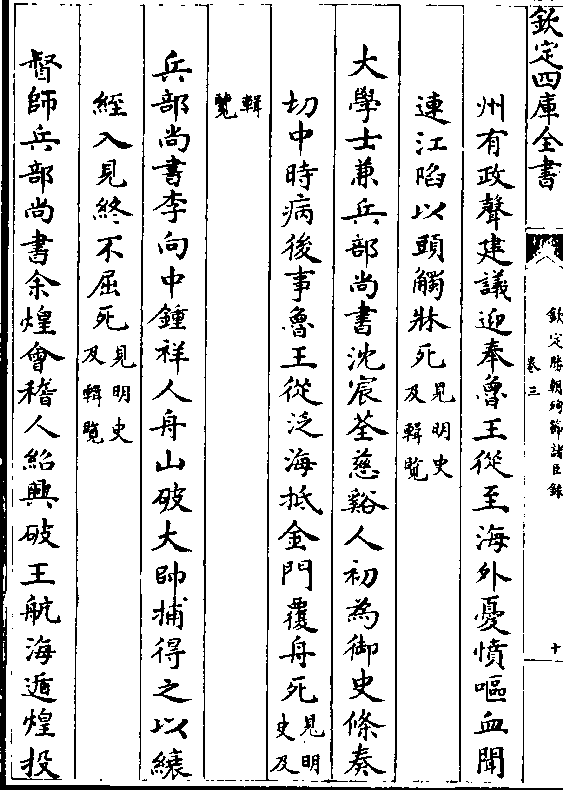 欽定四庫全書
欽定勝朝殉節諸臣錄
卷三
十
州有政聲建議迎奉魯王從至海外憂憤嘔血聞
連江陷以頭觸牀死見明史及輯覽
大學士兼兵部尚書沈宸荃慈谿人初為御史條奏
切中時病後事魯王從泛海抵金門覆舟死見明史及
輯覽
兵部尚書李向中鍾祥人舟山破大帥捕得之以縗
絰入見終不屈死見明史及輯覽
督師兵部尚書余煌會稽人紹興破王航海遁煌投